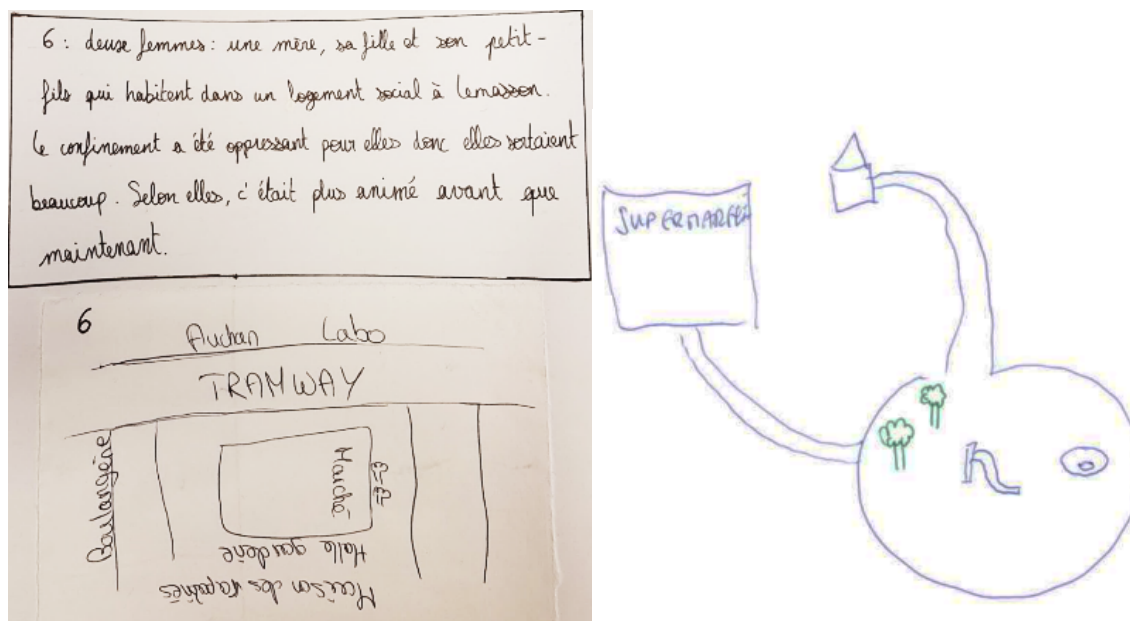 6 : deux femmes : une mère, sa fille et son petit-
fils qui habitent dans un logement social à Lemasson.
Le confinement a été oppressant pour elles donc elles sortaient
beaucoup. Selon elles, c'était plus animé avant que
maintenant.
6
Auchan Labo
TRAMWAY
Boulangerie
Marché
Halle garderie
Maison des
SUPERMARCHÉ